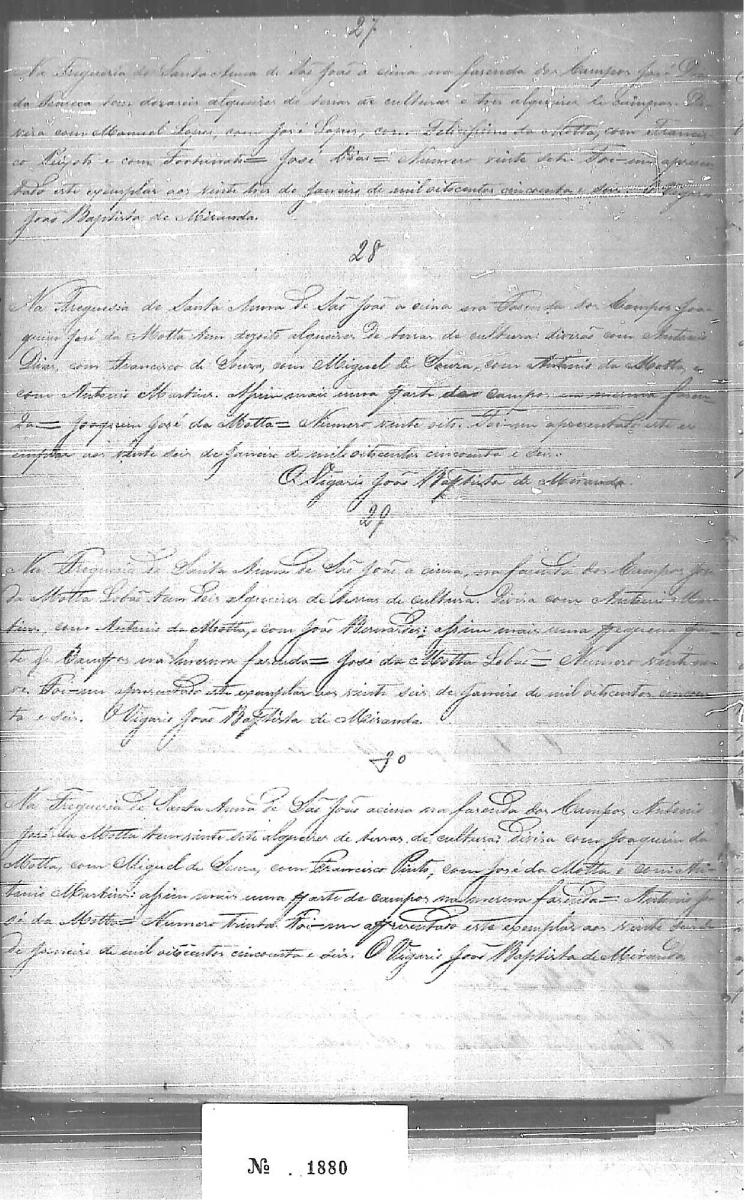 27
Na Freguesia de Santa Anna de São João à cima na fazenda dos Campos José Dias
da tem dezaseis alqueires de terras de culturas e tres alqueires de campos. Di-
vera com Manuel Lopes, com José Lopes, com Felicissimo da Motta, com Francis-
co e com Fortunato = José Dias = Numero vinte sete. Foi-me apresen-
tado este exemplar aos vinte tres de Janeiro de mil oitocentos cincoenta e seis. O Vigario
João Baptista de Miranda.
28
Na Freguesia de Santa Anna de São João a cima na Fazenda dos Campos Joa-
quim José da Motta tem dezoito alqueires de terras de cultura: divisão com Antonio
Dias, com Francisco de Souza, com Miguel de Souza, com Antonio da Motta, e
com Antonio Martins. Assim mais uma parte de campos na mesma fazen-
da = Joaquim José da Motta = Numero vinte oito. Foi-me apresentado este ex-
emplar aos vinte seis de Janeiro de mil oitocentos cincoenta e seis.
O Vigario João Baptista de Miranda.
29
Na Freguesia de Santa Anna de São João a cima, na fazenda dos Campos José
da Motta Lobão tem seis alqueires de terras de cultura. Divisa com Antonio Mar-
tins, com Antonio da Motta, e com João Bernardes: assim mais uma pequena par-
te de Campos na mesma fazenda = José da Motta Lobão = Numero vinte no-
ve. Foi-me apresentado este exemplar aos vinte seis de Janeiro de mil oitocentos cincoen-
ta e seis. O Vigario João Baptista de Miranda.
30
Na Freguesia de Santa Anna de São João acima na fazenda dos Campos Antonio
José da Motta tem vinte sete alqueires de terras de cultura: divisa com Joaquim da
Motta, com Miguel de Souza, com Francisco Pinto, com José da Motta e com An-
tonio Martins: assim mais uma parte de campos na mesma fazenda = Antonio Jo-
sé da Motta = Numero trinta. Foi-me apresentado este exemplar aos vinte
de Janeiro de mil oitocentos cincoenta e seis. O Vigario João Baptista de Miranda.
№ . 1880